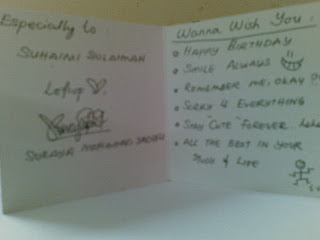 Especially to
SUHAIMI SULAIMAN
SURAYA MOHAMAD
Wanna Wish You:
HAPPY BIRTHDAY
SMILE ALWAYS
REMEMBER ME, OKAY
SORRY 4 EVERYTHING
STAY "CUTE" FOREVER
ALL THE BEST IN YOUR
LIFE